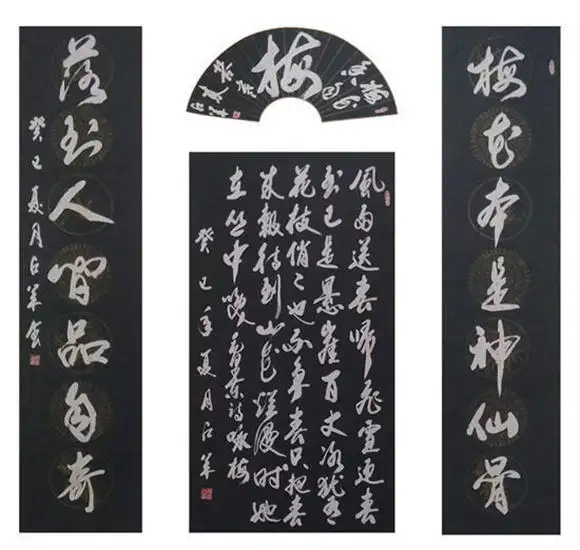 梅花本是神仙骨
梅
風雨送春歸飛雪迎春
到已是悬崖百丈冰犹有
花枝俏俏也不争春只把春
来报待到山花烂漫时她
在丛中笑 咏梅
癸巳年夏月
落到人间品自奇
癸巳夏月